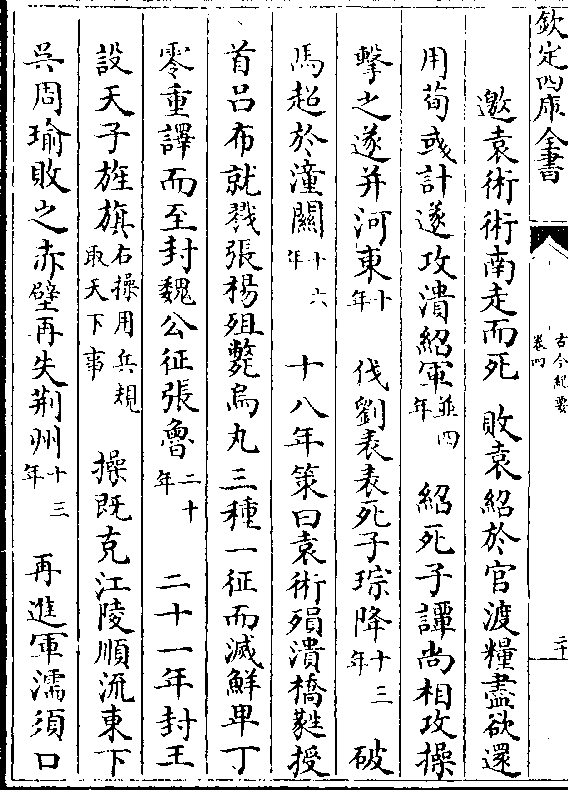 欽定四庫全書
古今紀要
卷四
二十
邀袁術術南走而死　敗袁紹於官渡糧盡欲還
用荀彧計遂攻潰紹軍並四年　紹死子譚尚相攻操
擊之遂并河東十年　伐劉表表死子琮降十三年　破
馬超於潼關十六年　十八年策曰袁術殞潰橋蕤授
首吕布就戮張楊殂斃烏丸三種一征而滅鮮卑丁
零重譯而至封魏公征張魯二十年　二十一年封王
設天子旌旗右操用兵規取天下事　操既克江陵順流東下
吳周瑜敗之赤壁再失荆州十三年　再進軍濡須口